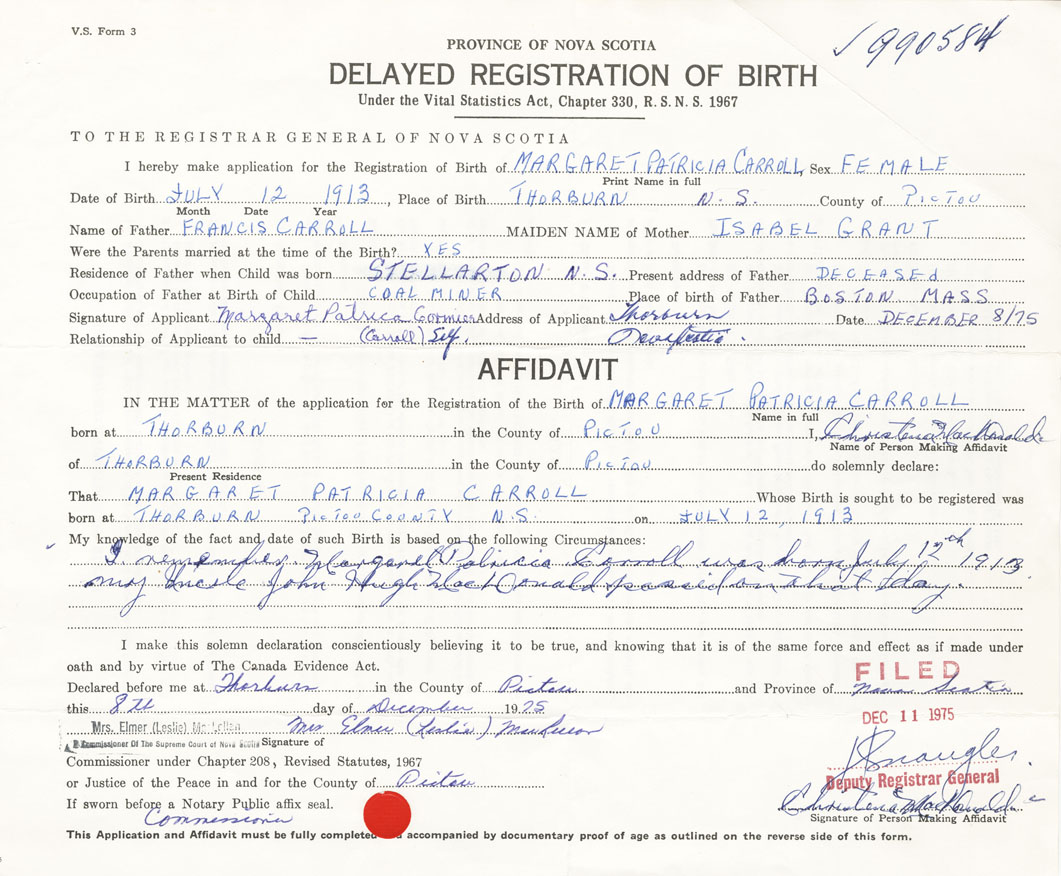 V.S. Form 3
✓ 990584
PROVINCE OF NOVA SCOTIA
DELAYED REGISTRATION OF BIRTH
Under the Vital Statistics Act, Chapter 330, R.S.N.S. 1967
TO THE REGISTRAR GENERAL OF NOVA SCOTIA
I hereby make application for the Registration of Birth of MARGARET PATRICIA CARROLL, Sex FEMALE
Print Name in full
Date of Birth JULY 12 1913, Place of Birth THORBURN N.S. County of PICTOU
Month Date Year
Name of Father FRANCIS CARROLL MAIDEN NAME of Mother ISABEL GRANT
Were the Parents married at the time of the Birth? YES
Residence of Father when Child was born STELLARTON N.S. Present address of Father DECEASEd
Occupation of Father at Birth of Child COAL MINER Place of birth of Father BOSTON MASS
Signature of Applicant Margaret Patrica Cormier Address of Applicant Thorburn Date DECEMBER 8/75
Relationship of Applicant to child — (Carroll) Self.
AFFIDAVIT
IN THE MATTER of the application for the Registration of the Birth of MARGARET PATRICIA CARROLL
Name in full
born at THORBURN in the County of PICTOU I, Christena MacDonald
Name of Person Making Affidavit
of THORBURN in the County of PICTOU do solemnly declare:
Present Residence
That MARGARET PATRICIA CARROLL Whose Birth is sought to be registered was
born at THORBURN PICTOU COUNTY N.S. on JULY 12, 1913
My knowledge of the fact and date of such Birth is based on the following Circumstances:
I remember Margaret Patricia Carroll was born July 12th 1913
my Uncle John Hugh MacDonald passed on that day.
I make this solemn declaration conscientiously believing it to be true, and knowing that it is of the same force and effect as if made under
oath and by virtue of The Canada Evidence Act.
FILED
Declared before me at Thorburn in the County of Pictou and Province of Nova Scotia
this 8th day of December 1975
DEC 11 1975
Mrs. Elmer (Leslie) McLellan Mrs Elmer (Leslie)
A Commissioner Of The Supreme Court of Nova Scotia Signature of
Commissioner under Chapter 208, Revised Statutes, 1967
or Justice of the Peace in and for the County of Pictou
Deputy Registrar General
If sworn before a Notary Public affix seal.
Christena MacDonald
Commissioner
Signature of Person Making Affidavit
This Application and Affidavit must be fully completed accompanied by documentary proof of age as outlined on the reverse side of this form.